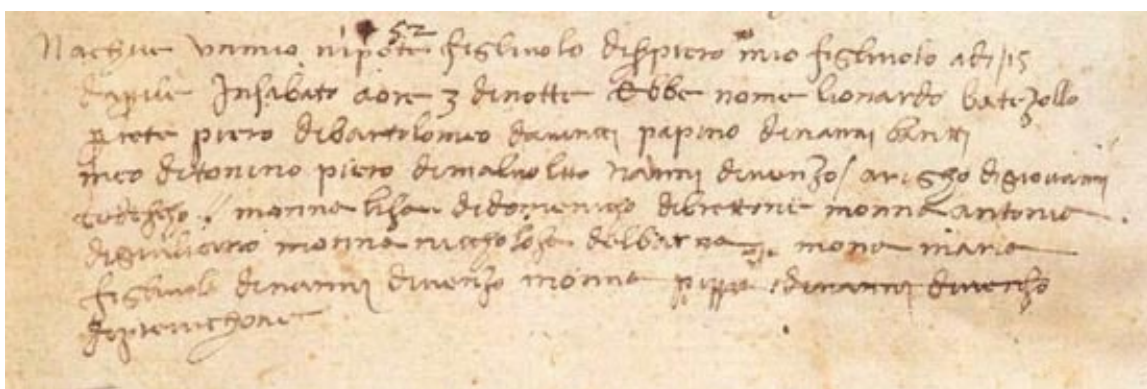 52
Nachue un mio nipote figliuolo di ser piero mio figliuolo adi 15
daprile in sabato a ore 3 di notte ebbe nome lionardo batezollo
prete piero di bartolomeo da uinci papino di nanni banti
meo di tonino piero di maluolto nanni di uenzo / arigho di giouanni
tedescho monna lisa di domenicho di brettone monna antonia
di giuliano monna nicholosa del barna mona maria
figliuola di nanni di uenzo monna pippa di nanni di uenzo
di preuichone